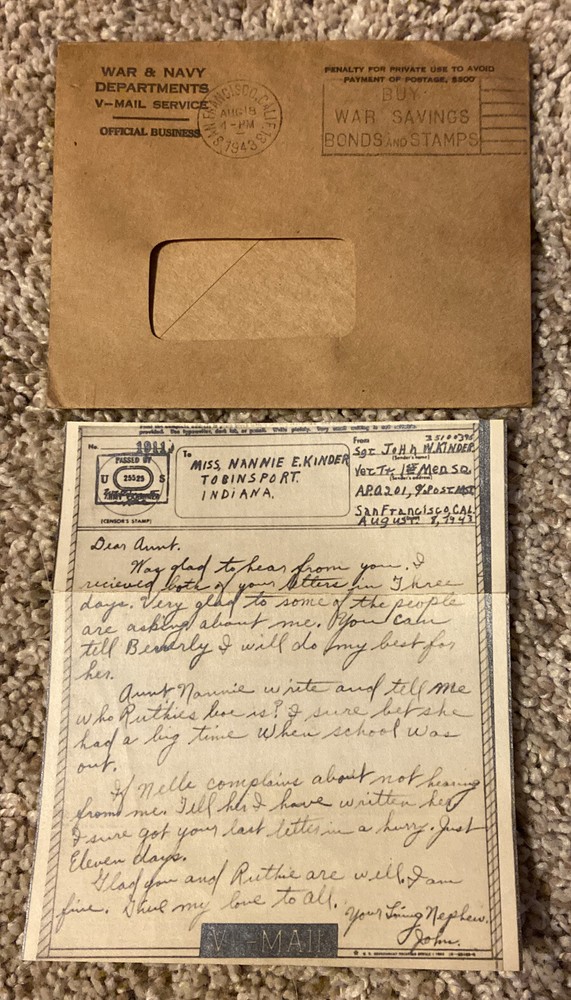 WAR & NAVY
DEPARTMENTS
V-MAIL SERVICE
OFFICIAL BUSINESS
SAN FRANCISCO, CALIF.
AUG 18
4-PM
1943
PENALTY FOR PRIVATE USE TO AVOID
PAYMENT OF POSTAGE, $300
BUY
WAR SAVINGS
BONDS AND STAMPS
No.
PASSED BY
U 25525 S
(CENSOR'S STAMP)
To
MISS, NANNIE E. KINDER
TOBINSPORT.
INDIANA.
From
Sgt. JOHN W. KINDER
(Sender's name)
Vet. Tr. 1st Med Sq.
(Sender's address)
A.P.O. 201, % POST MST
San Francisco, CAL.
AUGUST 8, 1943
Dear Aunt.
Way glad to hear from you. I
recieved lots of your letters in Three
days. Very glad to some of the people
are asking about me. You can
tell Beverly I will do my best for
her.
Aunt Nannie write and tell me
who Ruthies is? I sure bet she
had a big time when school was
out.
If Nelle complains about not hearing
from me. Tell her I have written her
I sure got your last letter in a hurry. Just
Eleven days.
Glad you and Ruthie are well. I am
fine. my love to all.
Your Nephew.
John.
V-MAIL